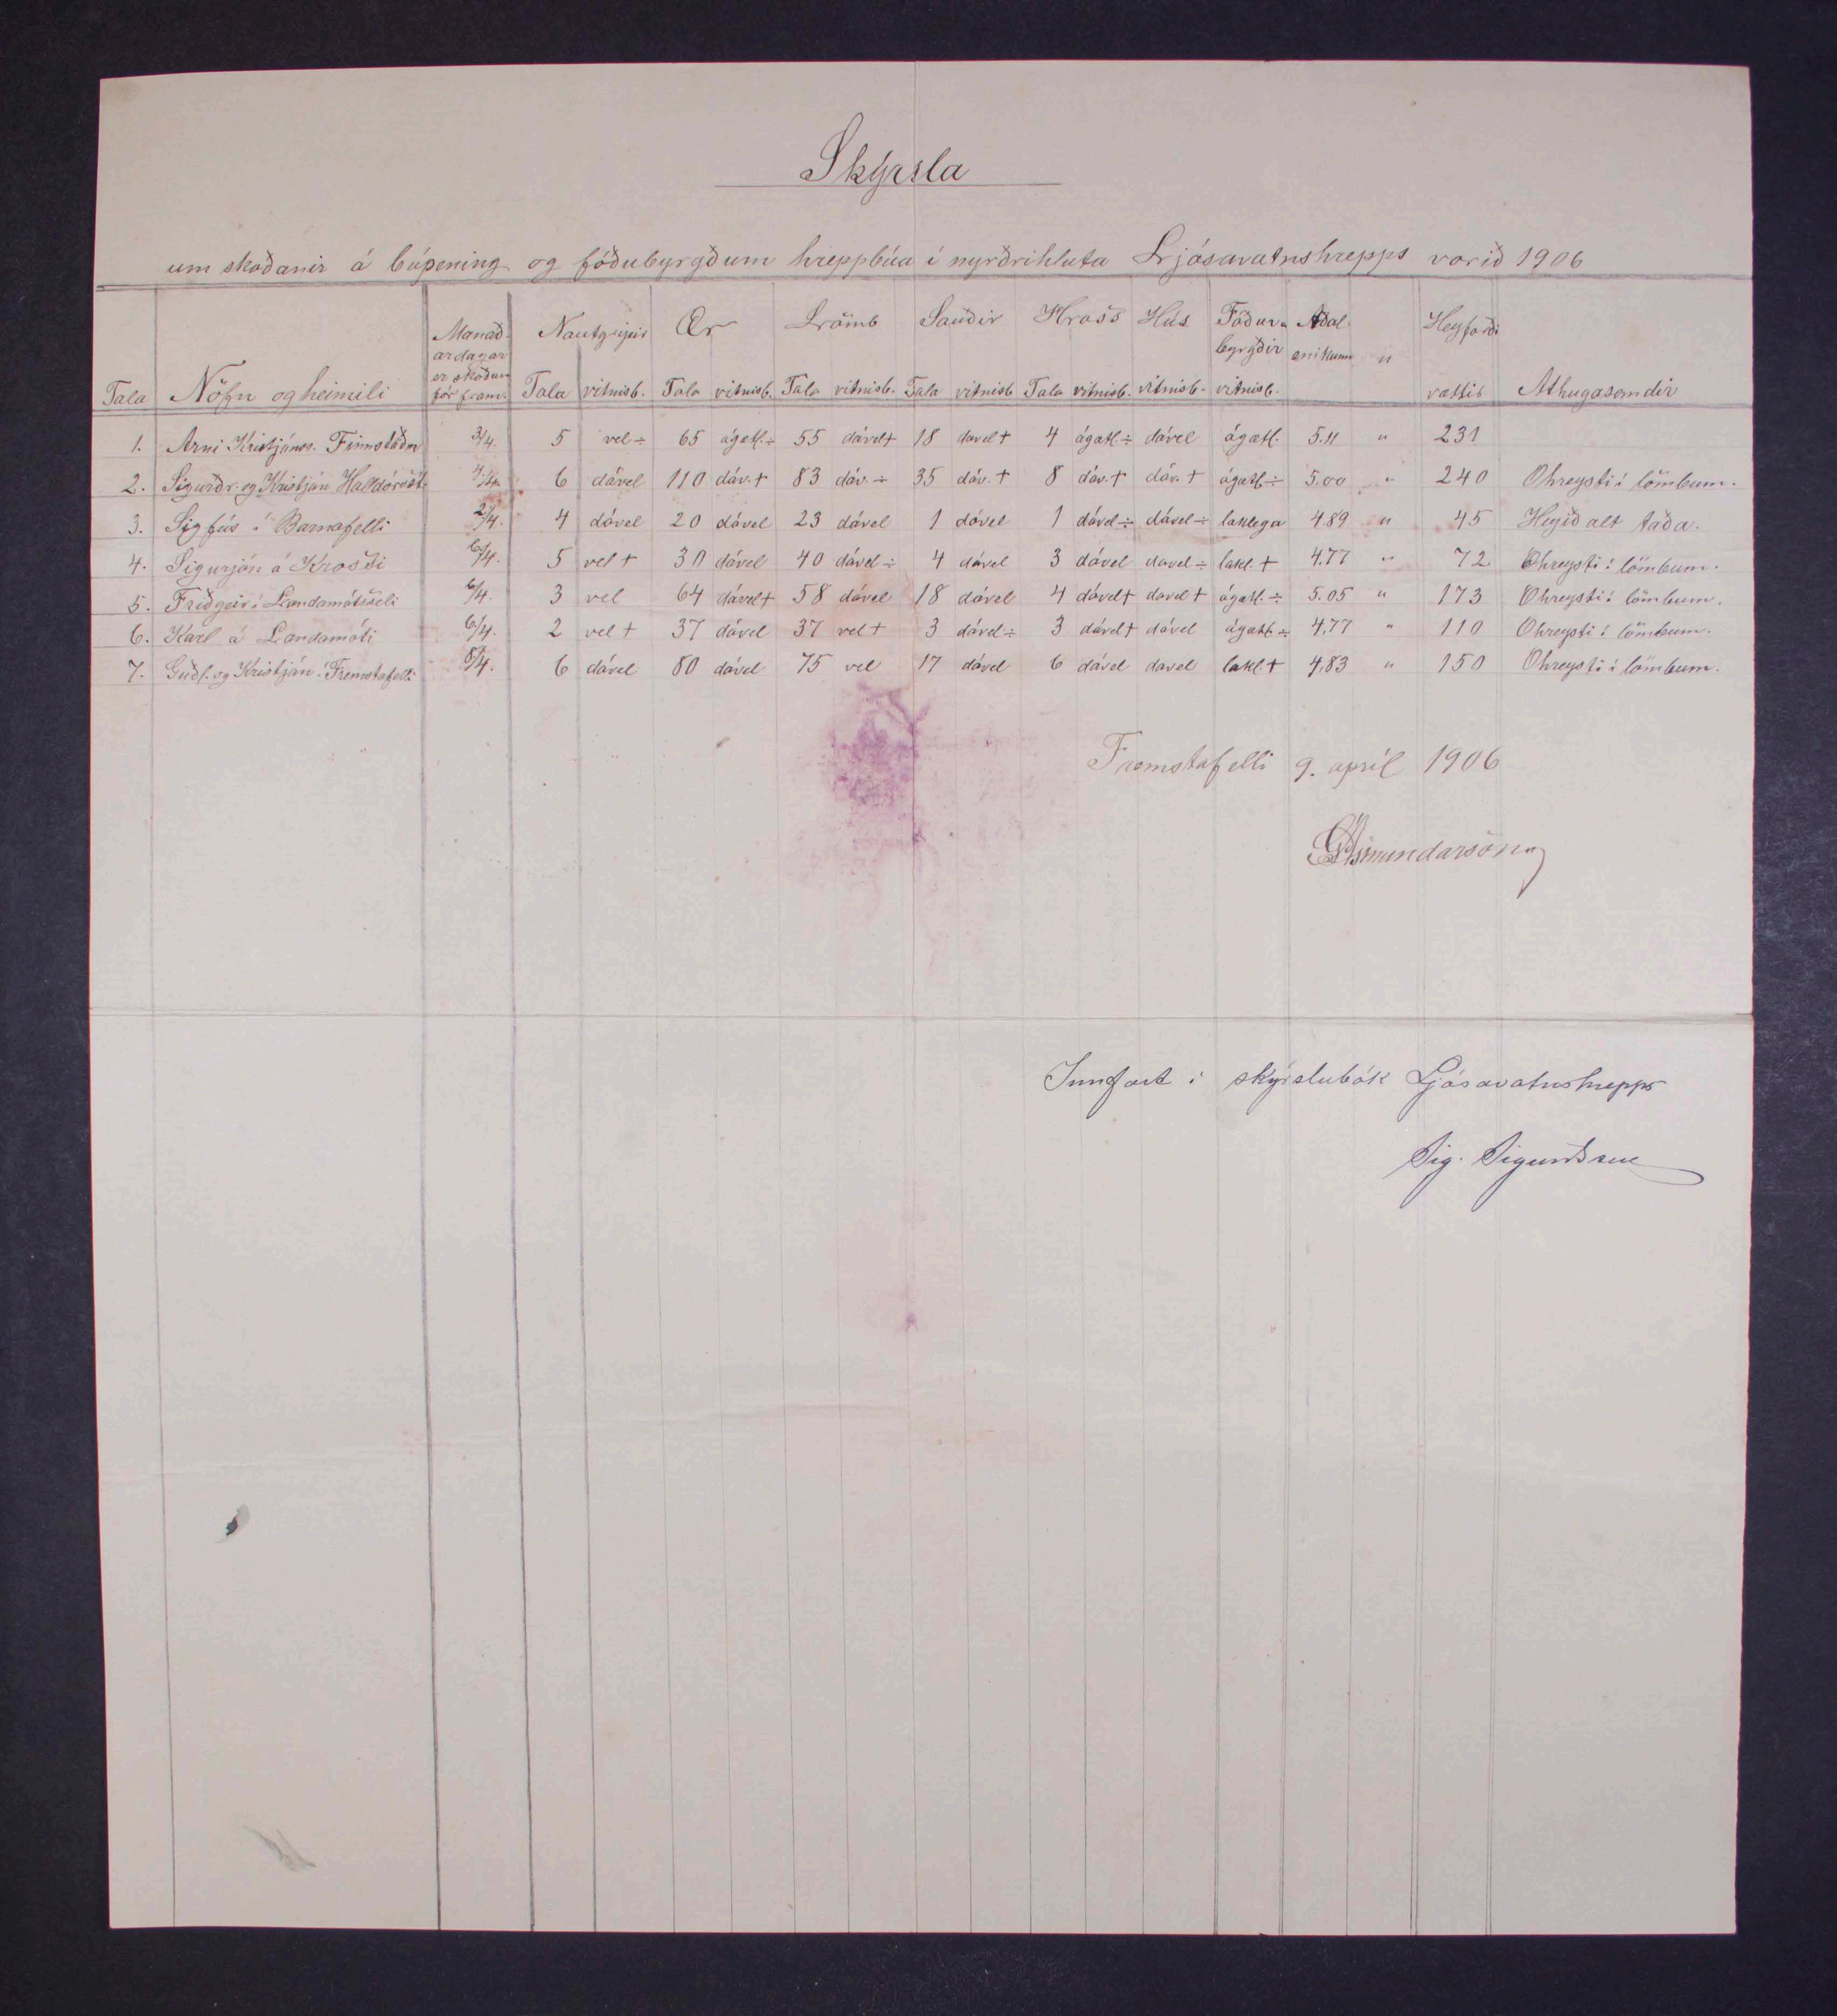 Skýrsla
um skoðanir á búpening og fóðubyrgðum hreppbúa í nyrðrihluta Ljósavatnshrepps vorið 1906
Tala Nöfn og heimili Manaðardagar er skoðun fór fram. Nautgripir Tala vitnisb. Ær Tala vitnisb. Lömb Tala vitnisb. Sauðir Tala vitnisb Hross Tala vitnisb. Hús vitnisb. Fóðurbyrgðir vitnisb. Aðal enikunn " Heyforði vættir Athugasemdir
1. Arni Kristjánss. Finnstöðm 3/4. 5 vel ÷ 65 ágætl. ÷ 55 dável + 18 davel + 4 ágætl ÷ dável ágætl. 5.11 " 231
2. Sigurðr. og Kristján Halldórsst. 4/4. 6 dável 110 dáv. + 83 dáv. ÷ 35 dáv. + 8 dáv. + dáv. + ágætl ÷ 5.00 " 240 Ohreysti í lömbum.
3. Sigfús í Barnafelli 2/4. 4 dável 20 dável 23 dável 1 dável 1 dável ÷ dável ÷ laklega 4.89 " 45 Heyið alt taða.
4. Sigurjón á Krossi 6/4. 5 vel + 30 dável 40 dável ÷ 4 dável 3 dável davel ÷ lakl. + 4.77 " 72 Ohreysti í lömbum.
5. Friðgeir í Landamótsseli 6/4. 3 vel 64 dável + 58 dável 18 dável 4 dável + davel + ágætl. ÷ 5.05 " 173 Ohreysti í lömbum.
6. Karl á Landamóti 6/4. 2 vel + 37 dável 37 vel + 3 dável ÷ 3 dável + dável ágætl. ÷ 4.77 " 110 Ohreysti í lömbum.
7. Guðl. og Kristján í Fremstafelli 8/4. 6 dável 80 dável 75 vel 17 dável 6 dável davel lakl. + 4.83 " 150 Ohreysti í lömbum.
Fremstafelli 9. apríl 1906
GÁsmundarsöner
Innfært í skýrslubók Ljósavatnshrepps
Sig. Sigurðsson